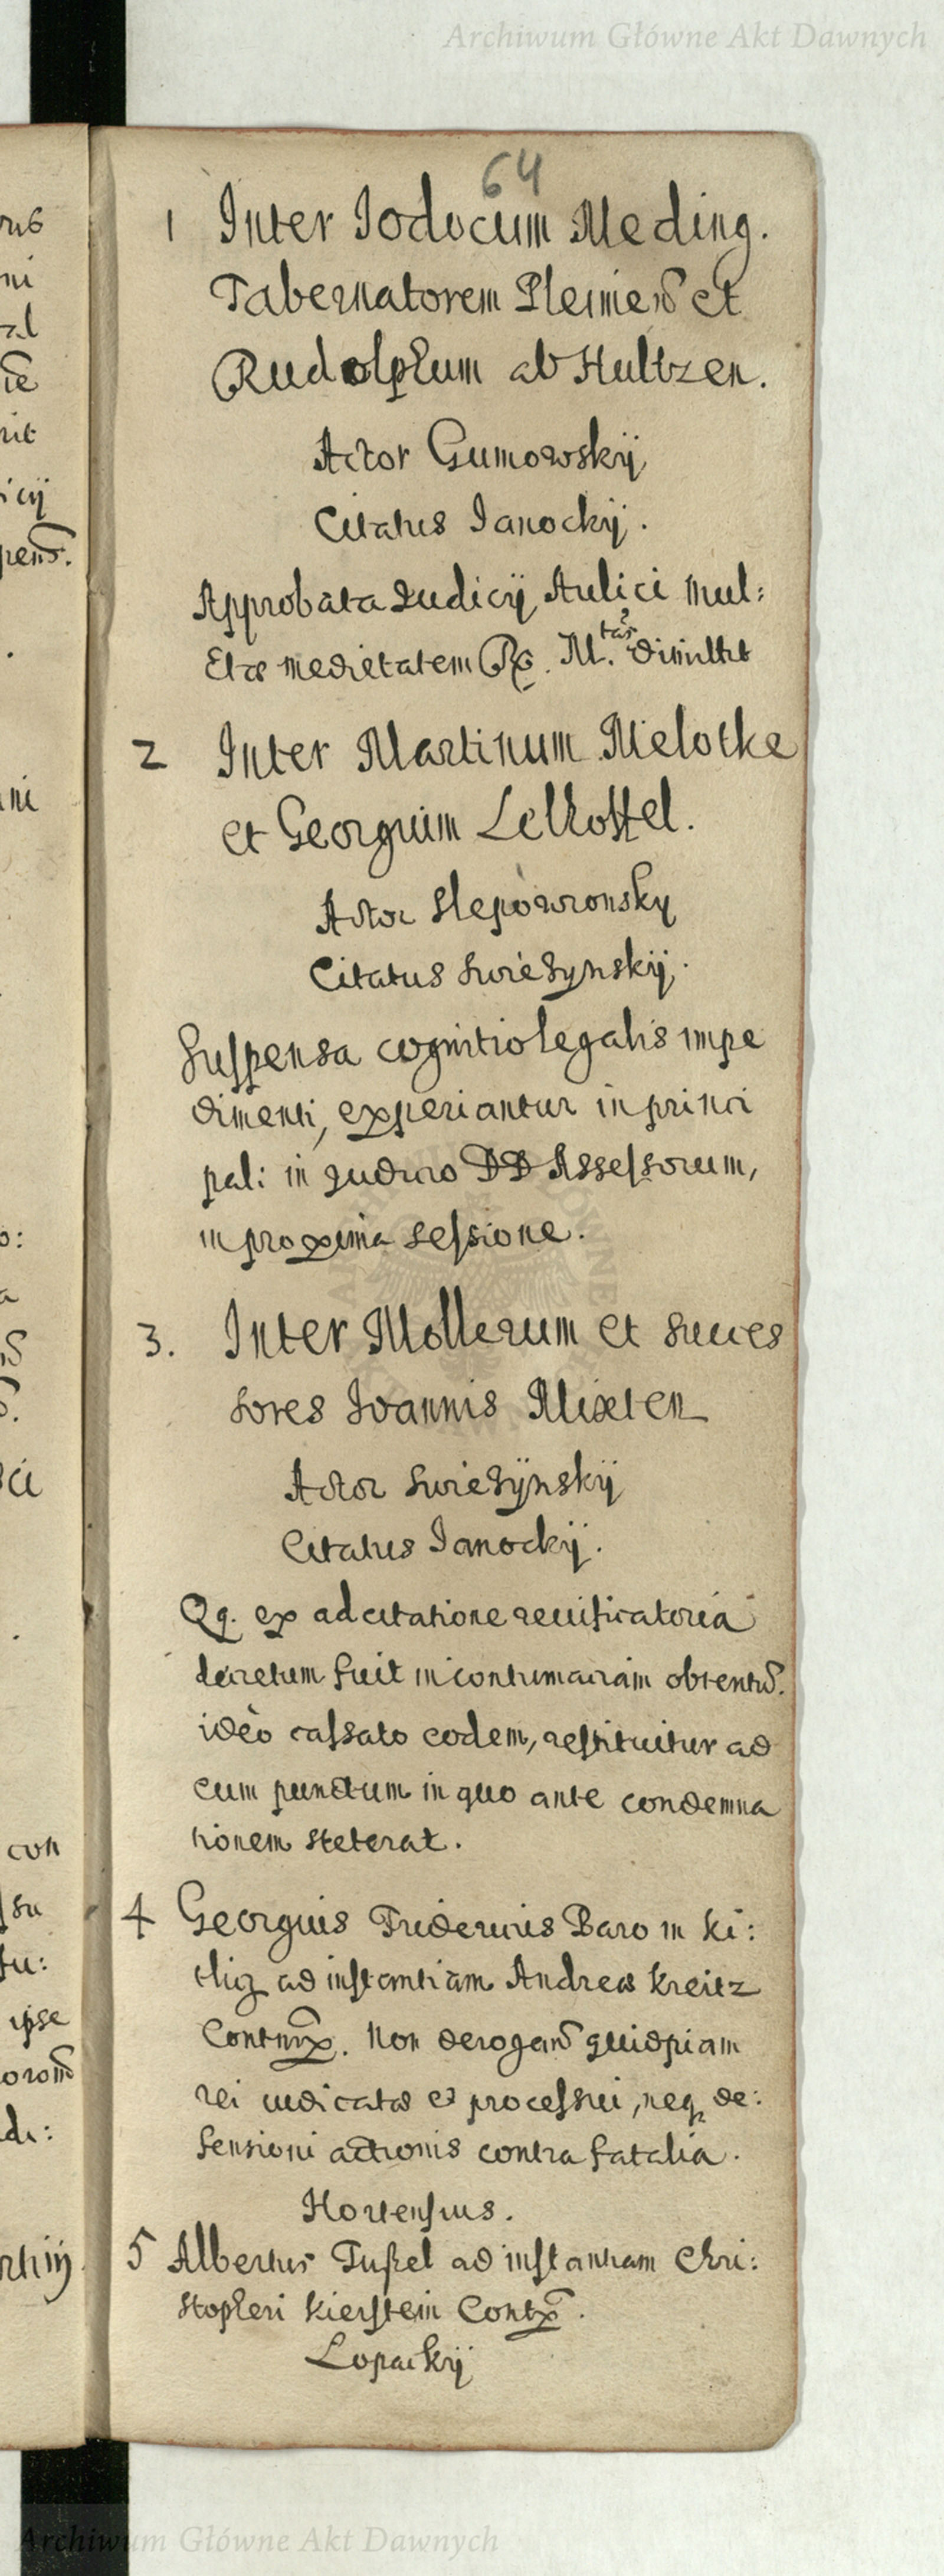 Archiwum Główne Akt Dawnych
64
1 Inter Iodocum Meding.
Tabernatorem et
Rudolphum ab Hultzen.
Actor Gumowskÿ
Citatus Ianockÿ.
Approbata Iudicÿ Aulici mul:
ctæ medietatem Rx. M.tas dimittit
2 Inter Martinum Melotke
et Georgium Lelkostel.
Actor Slepowronsky
Citatus Swiesynskÿ.
Suspensa cognitio legalis impe
dimenti, experiantur in princi
pal: in Iudicio DD Assessorum,
in proxima sessione.
3. Inter Mollerum et succes
sores Ioannis Mixten
Actor Swiesÿnskÿ
Citatus Ianockÿ.
Qq. ex adcitatione
decretum fuit in contumaciam obtentũ.
ideò cassato eodem, restituitur ad
eum punctum in quo ante condemna
tionem steterat.
4 Georgius Fridericus Baro in Ki:
tlig ad instantiam Andreæ Kreitz
Contumx. Non derogand̃ quidpiam
rei iudicatæ et processui, neq de:
fensioni actionis contra fatalia.
Hortensius.
5 Albertus ad instantiam Chri:
stopheri Kierstein Contx̃.
Lopackÿ
Archiwum Główne Akt Dawnych